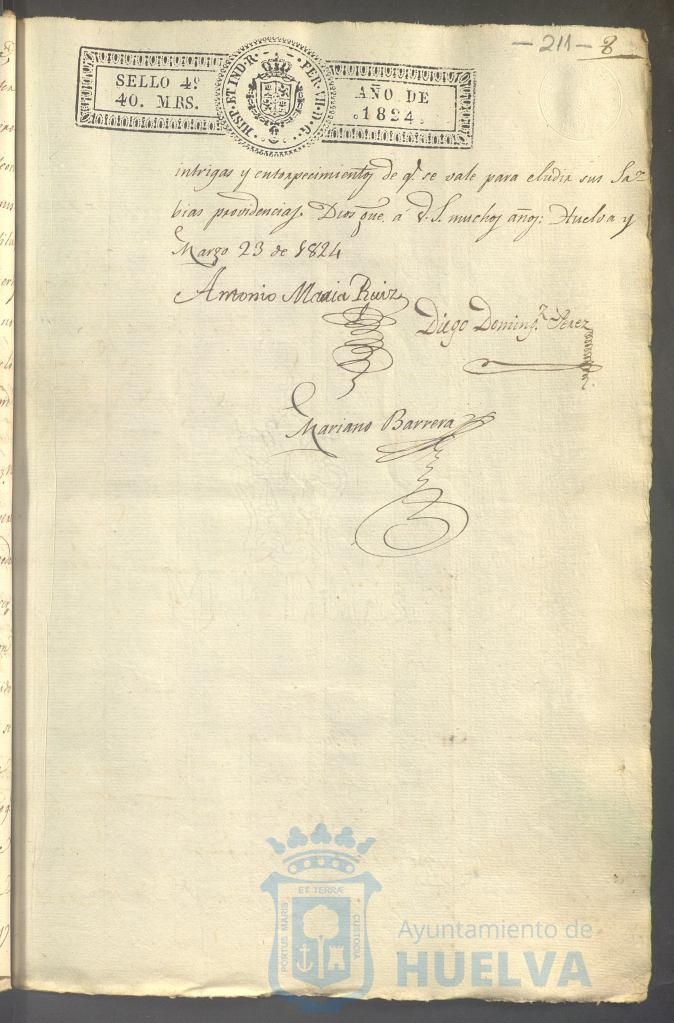 - 211 - 8
SELLO 4º
40. MRS.
HISP. ET IND. R. FER. VII. D. G.
AÑO DE
1824
intrigas y entorpecimientos de q.e se vale para eludir sus Sa-
bias providencias. Dios gue. á V. S. muchos años: Huelva y
Marzo 23 de 1824
Antonio Maria Ruiz
Diego Doming.z Perez
Mariano Barrera
ET TERRÆ
PORTUS MARIS
CUSTODIA
Ayuntamiento de
HUELVA